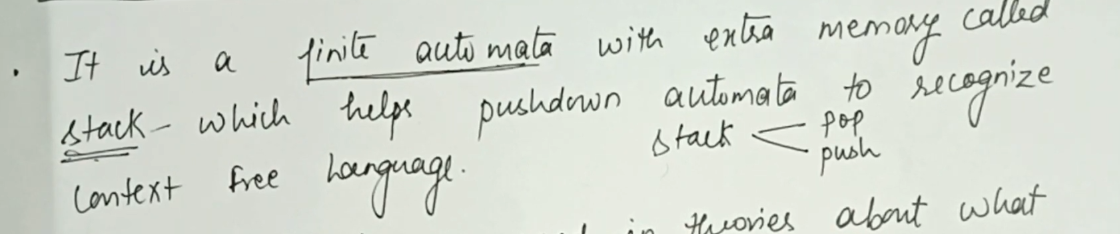 . It is a finite automata with extra memory called
stack - which helps pushdown automata to recognize
context free language. stack < pop
push
in theories about what